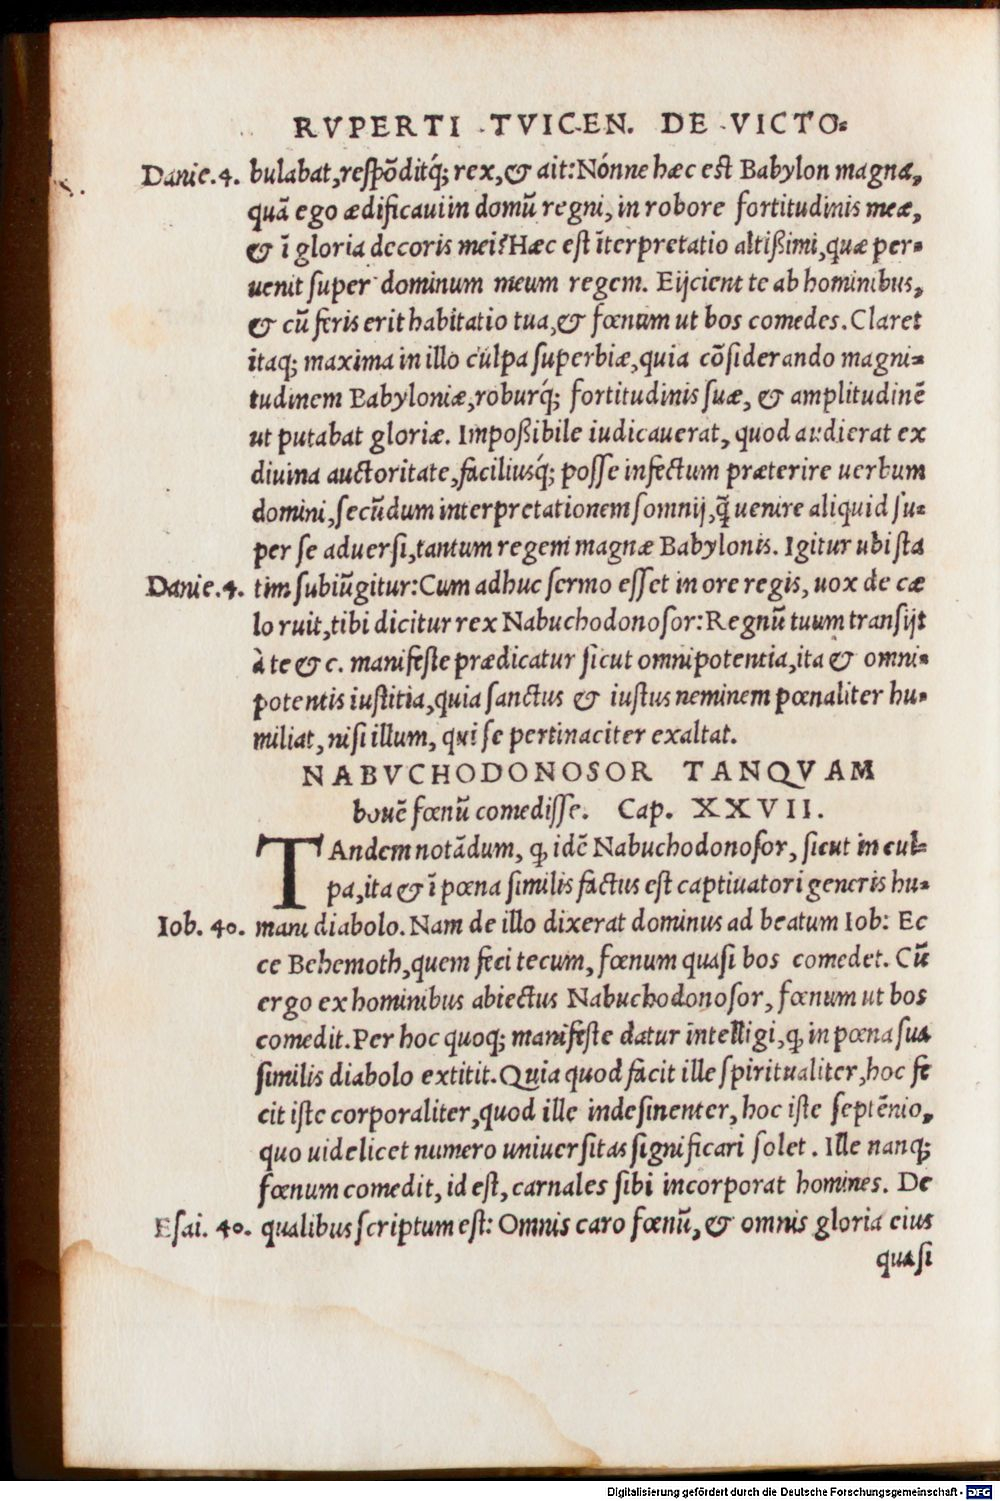 RVPERTI TVICEN. DE VICTO-
Danie.4. bulabat,respōditq́; rex,& ait:Nónne hæc est Babylon magna,
quā ego ædificaui in domū regni, in robore fortitudinis meæ,
& ī gloria decoris mei? Hæc est īterpretatio altißimi,quæ per-
uenit super dominum meum regem. Eijcient te ab hominibus,
& cū feris erit habitatio tua,& fœnum ut bos comedes. Claret
itaq; maxima in illo culpa superbiæ,quia cōsiderando magni-
tudinem Babyloniæ,roburq́; fortitudinis suæ, & amplitudinē
ut putabat gloriæ. Impoßibile iudicauerat, quod audierat ex
diuina auctoritate,faciliusq́; posse infectum præterire uerbum
domini,secūdum interpretationem somnij,q̄ uenire aliquid su-
per se aduersi,tantum regem magnæ Babylonis. Igitur ubi sta
Danie.4. tim subiūgitur:Cum adhuc sermo esset in ore regis, uox de cæ
lo ruit,tibi dicitur rex Nabuchodonosor:Regnū tuum transijt
à te & c. manifeste prædicatur sicut omnipotentia,ita & omni-
potentis iustitia,quia sanctus & iustus neminem pœnaliter hu-
miliat, nisi illum, qui se pertinaciter exaltat.
NABVCHODONOSOR TANQVAM
bouē fœnū comedisse. Cap. XXVII.
TAndem notādum, ꝙ idē Nabuchodonosor, sicut in cul-
pa,ita & ī pœna similis factus est captiuatori generis hu-
Iob. 40. mani diabolo. Nam de illo dixerat dominus ad beatum Iob: Ec
ce Behemoth,quem feci tecum, fœnum quasi bos comedet. Cū
ergo ex hominibus abiectus Nabuchodonosor, fœnum ut bos
comedit. Per hoc quoq; manifeste datur intelligi,ꝙ in pœna sua
similis diabolo extitit. Quia quod facit ille spiritualiter,hoc fe
cit iste corporaliter,quod ille indesinenter, hoc iste septēnio,
quo uidelicet numero uniuersitas significari solet. Ille nanq;
fœnum comedit, id est, carnales sibi incorporat homines. De
Esai. 40. qualibus scriptum est: Omnis caro fœnū, & omnis gloria eius
quasi
Digitalisierung gefördert durch die Deutsche Forschungsgemeinschaft - DFG